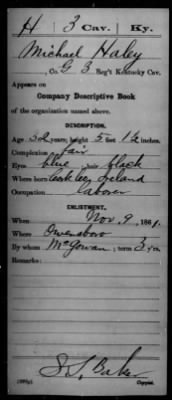 H 3 Cav. Ky.
Michael Haley
, Co. G 3 Reg't Kentucky Cav.
Appears on
Company Descriptive Book
of the organization named above.
DESCRIPTION.
Age 32 years; height 5 feet 1½ inches.
Complexion fair
Eyes blue, hair black
Where born Ireland
Occupation laborer
ENLISTMENT.
When Nov. 9, 1861.
Where Owensboro
By whom McGowan; term 3 y'rs.
Remarks:
S. L. Baker
Copyist.